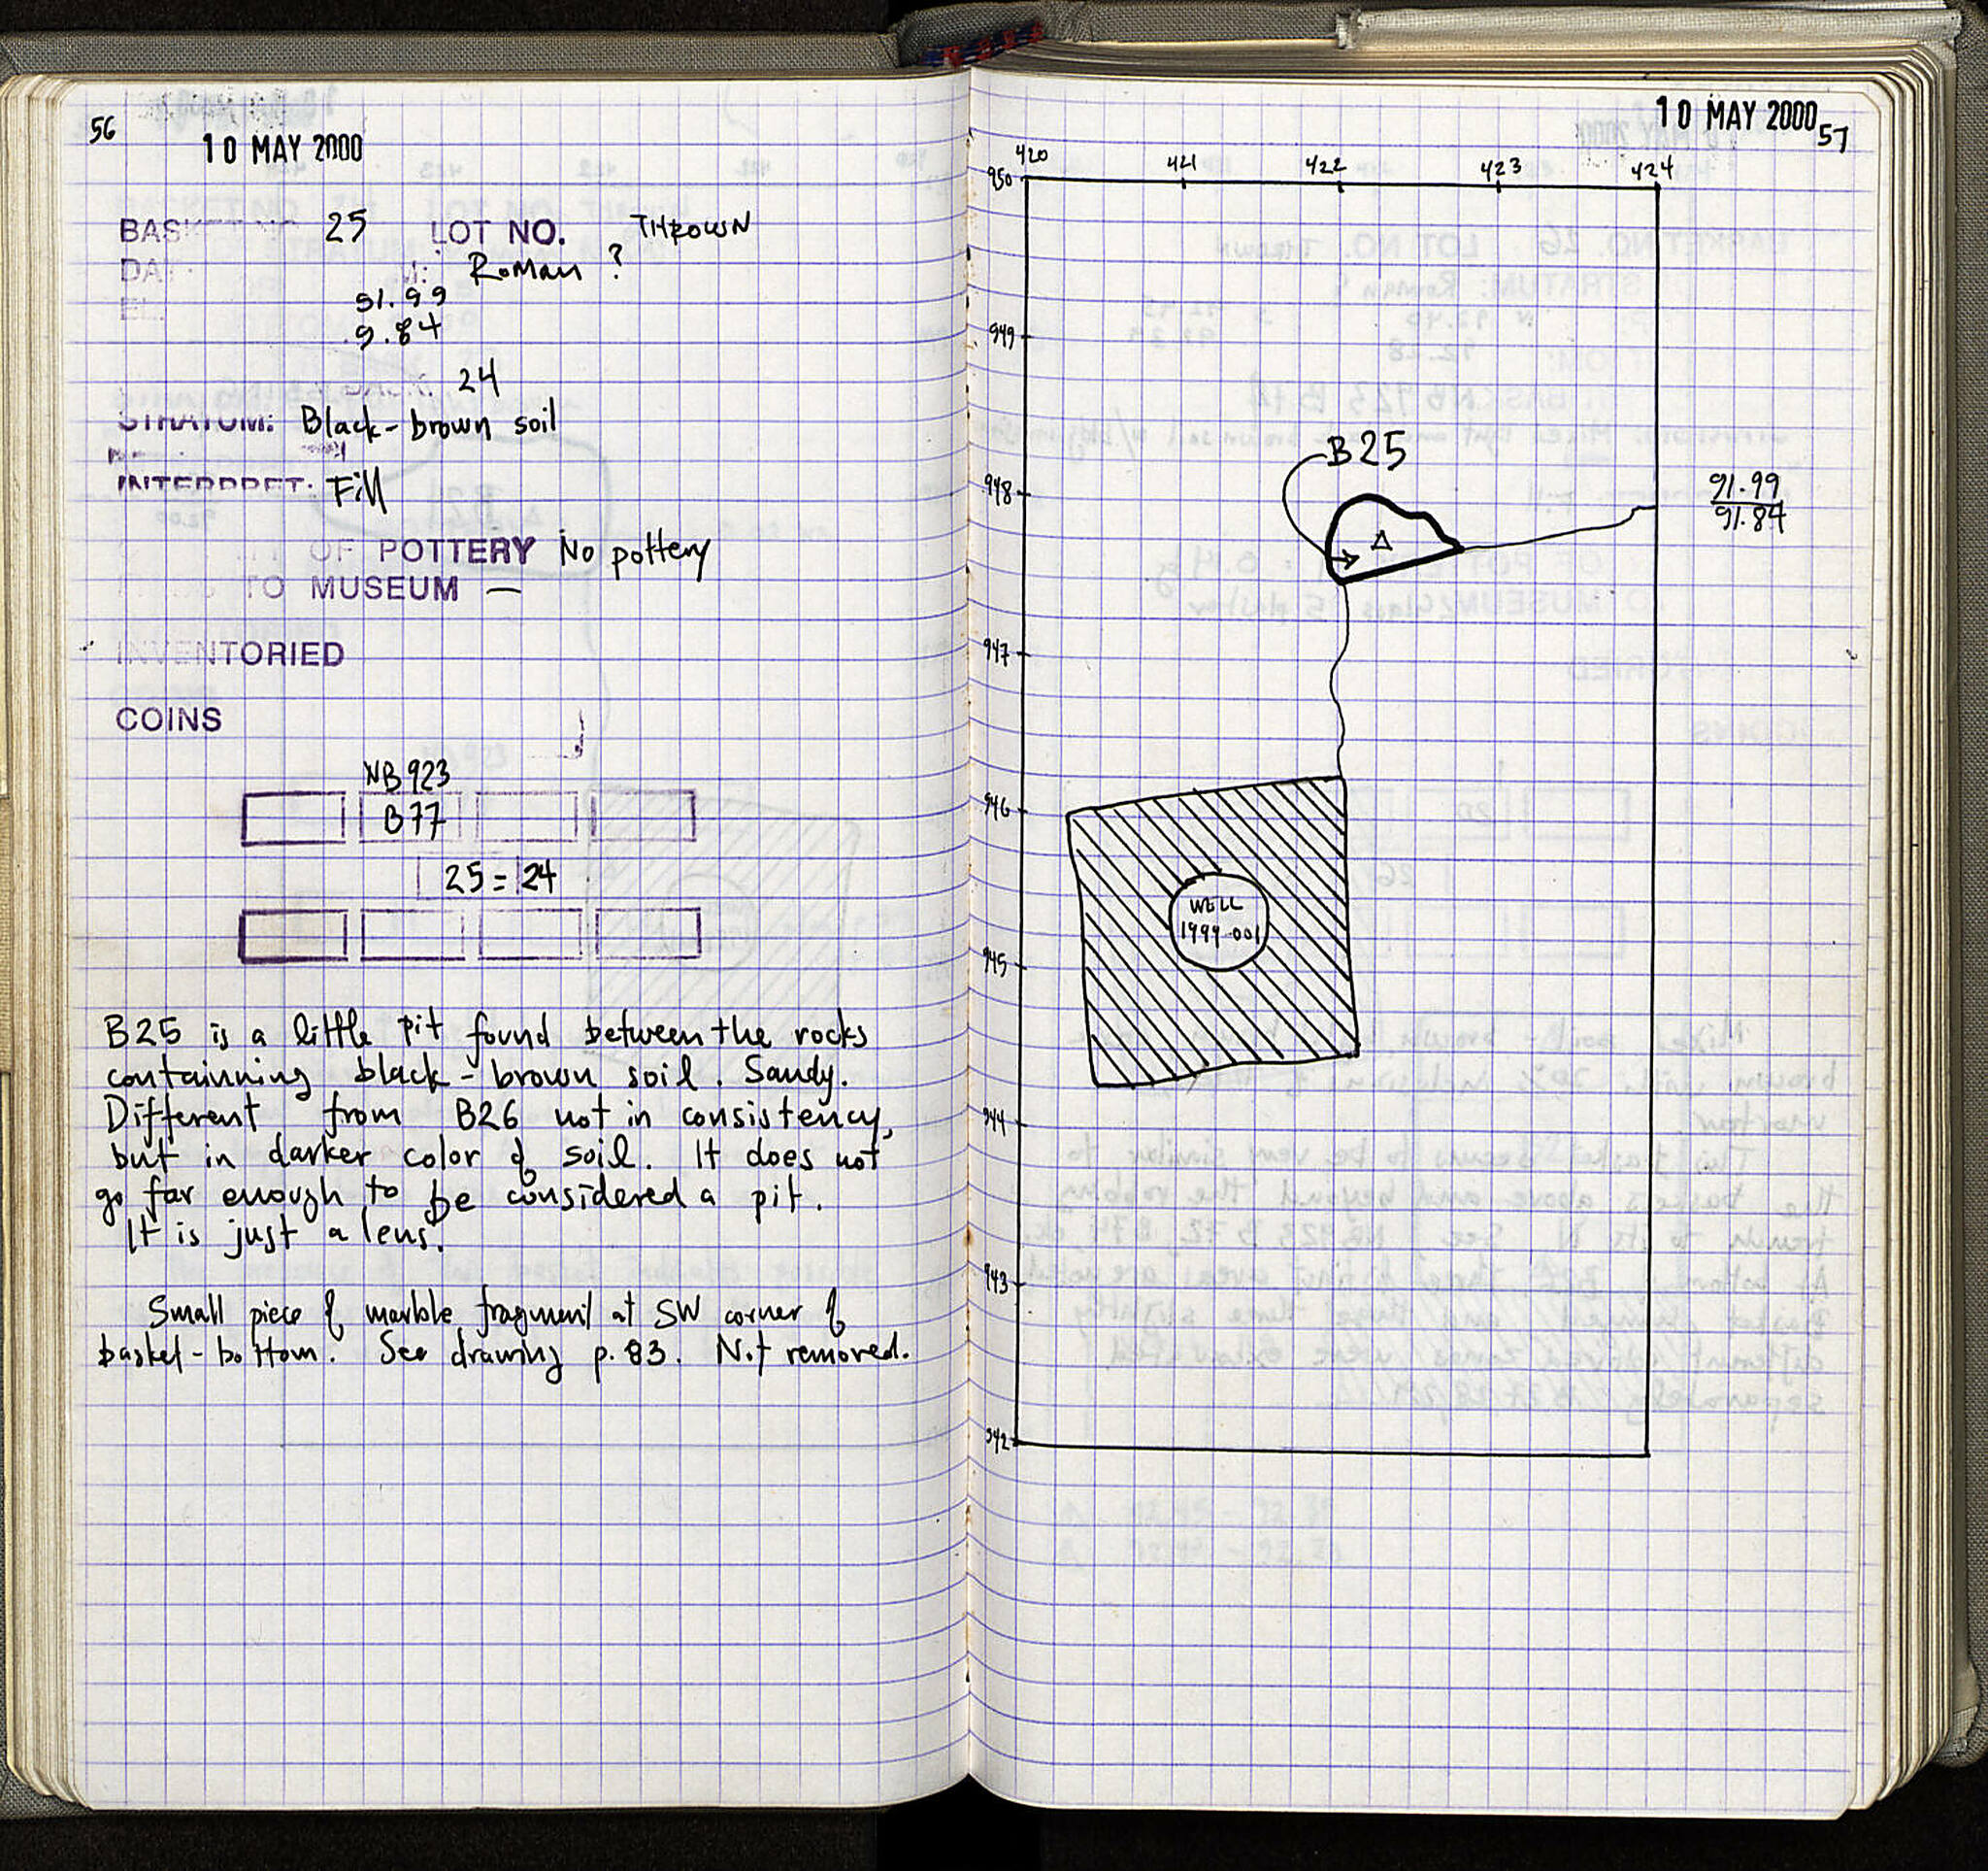 56
10 MAY 2000
BASKET NO. 25 LOT NO. THROWN
DAT Roman ?
EL. 91.99
9.84
24
STRATUM: Black-brown soil
INTERPRET: Fill
OF POTTERY No pottery
TO MUSEUM —
INVENTORIED
COINS
NB 923
B77
25 = 24
B25 is a little pit found between the rocks
containning black-brown soil. Sandy.
Different from B26 not in consistency,
but in darker color of soil. It does not
go far enough to be considered a pit.
It is just a lens.
Small piece of marble fragment at SW corner of
basket-bottom. See drawing p. 83. Not removed.
10 MAY 2000
57
420 421 422 423 424
950
949
B25
948
91.99
91.84
947
946
WELL
1999-001
945
944
943
942